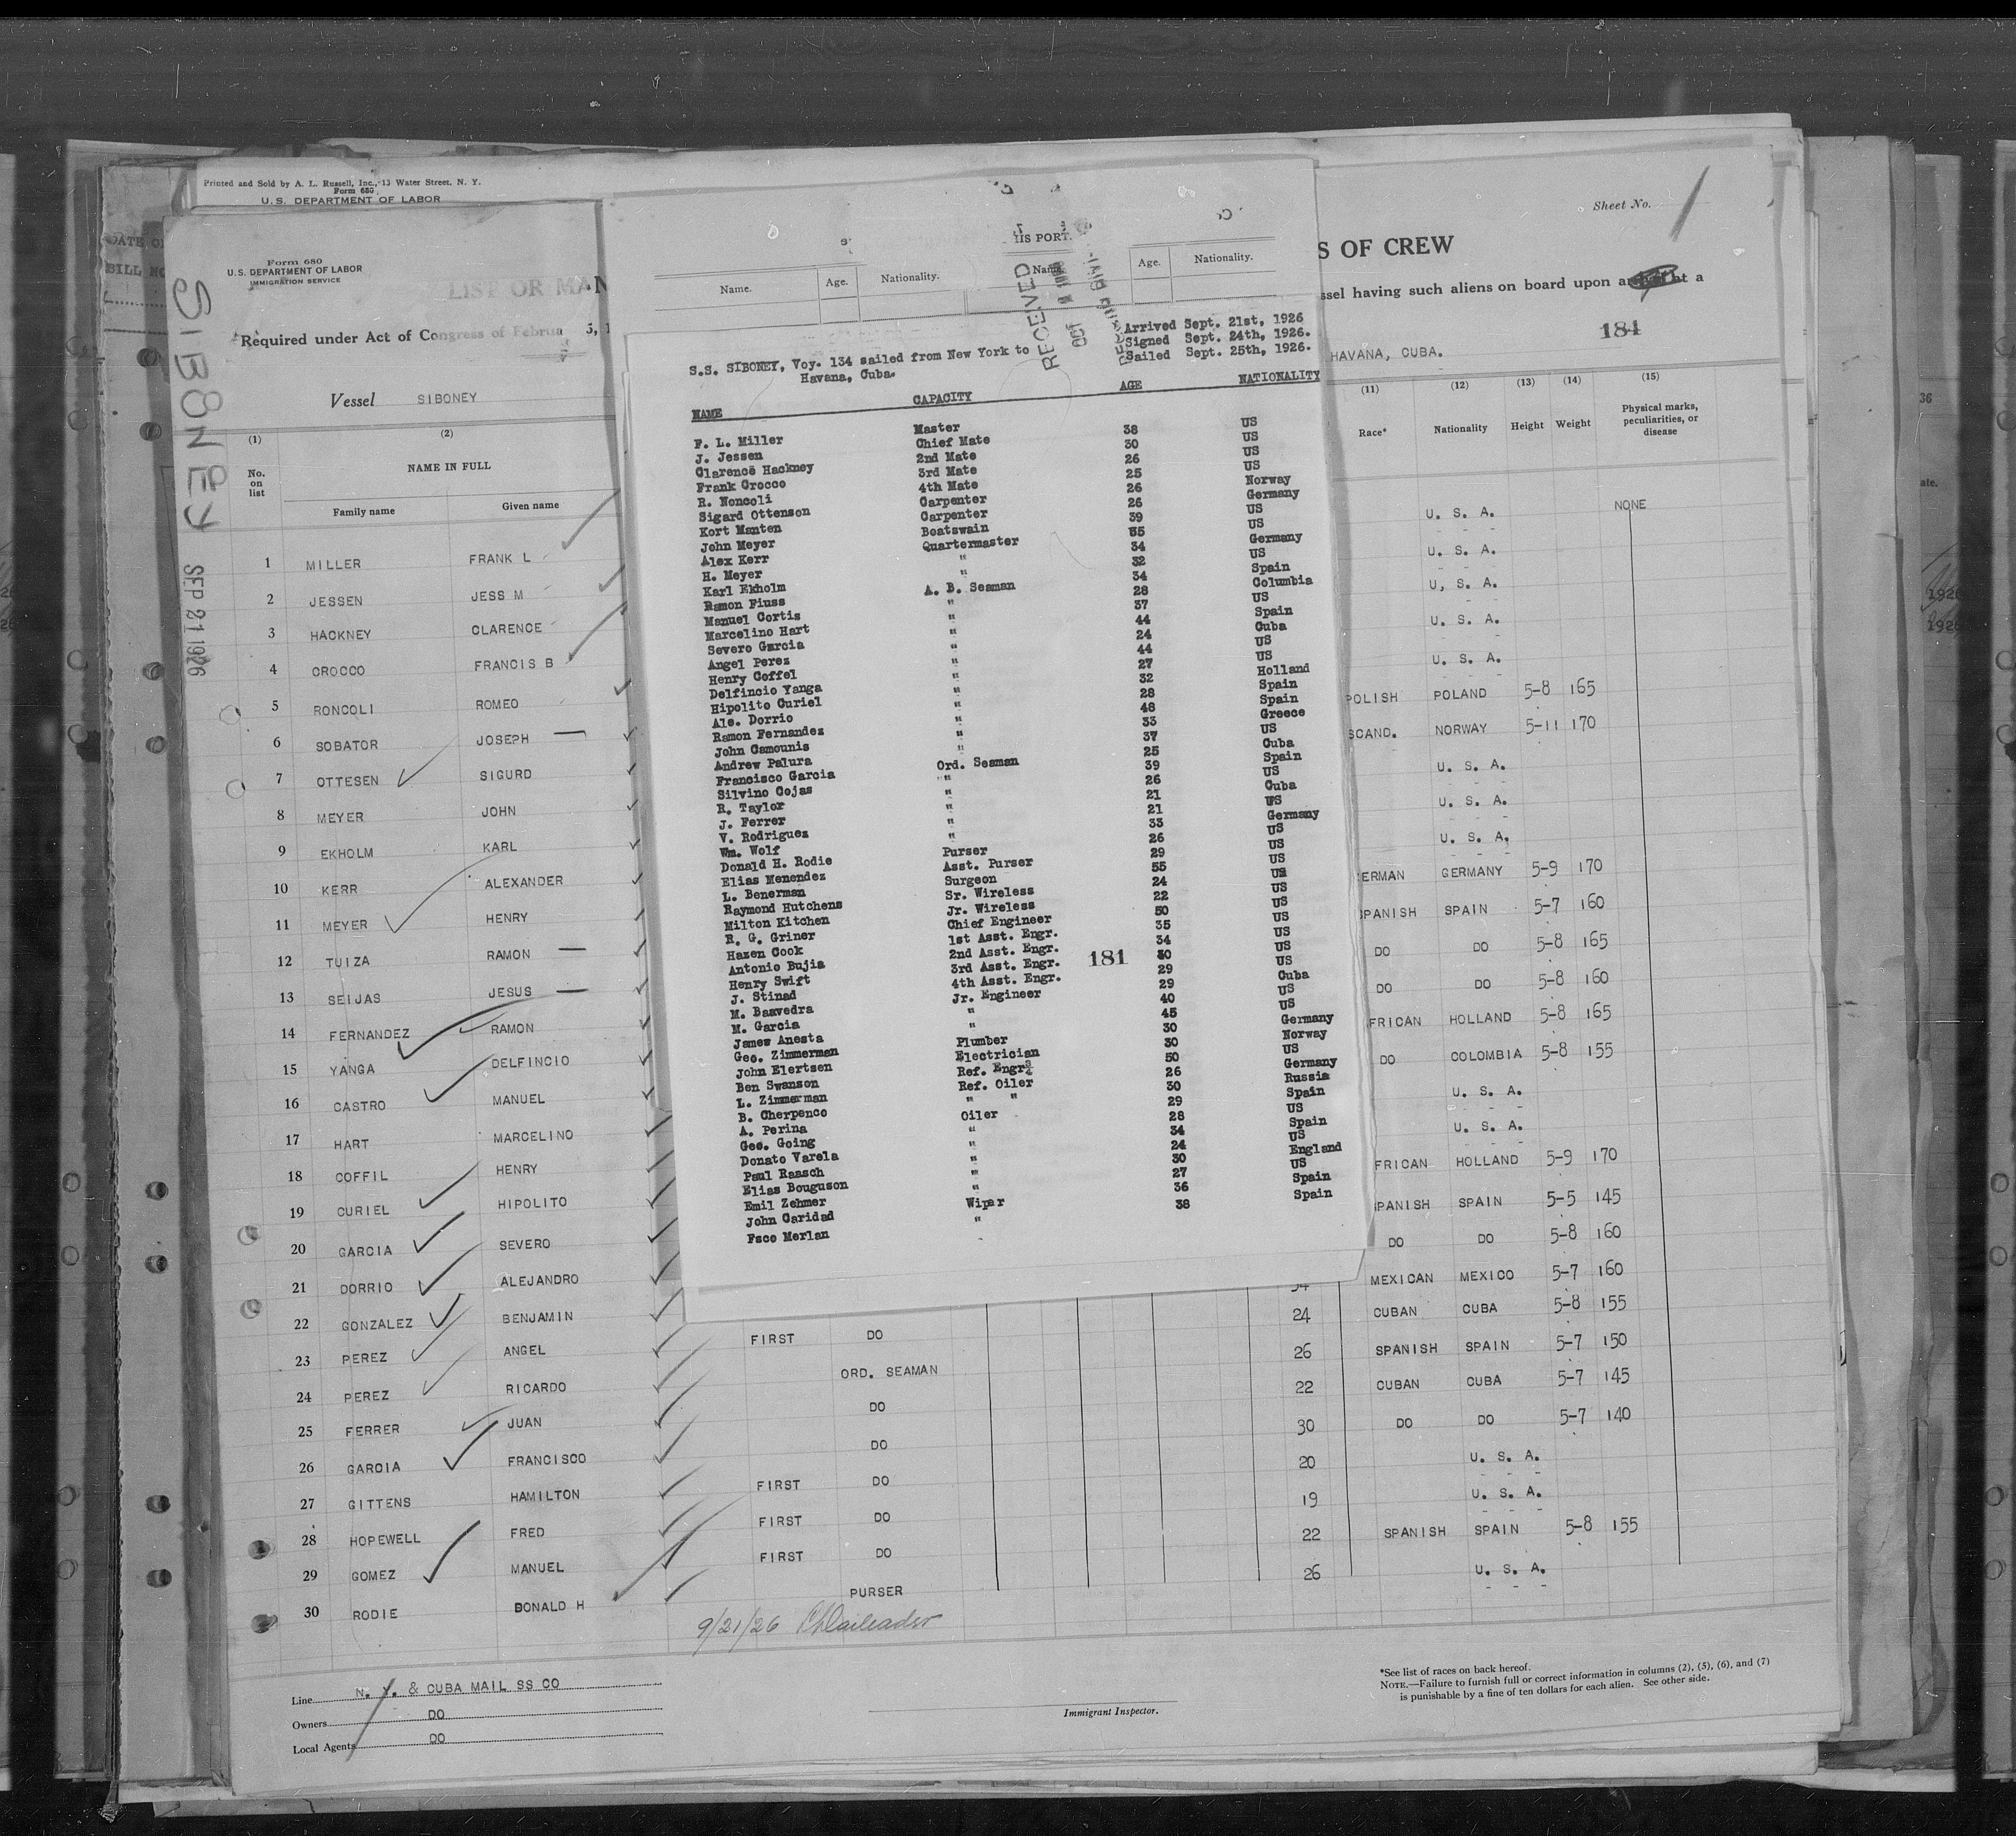 Printed and Sold by A. L. Russell, Inc., 13 Water Street, N. Y.
Form 680
U.S. DEPARTMENT OF LABOR
Form 680
U.S. DEPARTMENT OF LABOR
IMMIGRATION SERVICE
LIST OR MAN
S OF CREW
Sheet No. 1
Required under Act of Congress of Februa 5, 1
ssel having such aliens on board upon at a
184
Vessel SIBONEY
HAVANA, CUBA.
SIBONEY
SEP 21 1926
(1) (2) (11) (12) (13) (14) (15)
No. on list
NAME IN FULL
Family name Given name
Race* Nationality Height Weight Physical marks, peculiarities, or disease
NONE
1 MILLER FRANK L U. S. A.
2 JESSEN JESS M U. S. A.
3 HACKNEY CLARENCE U, S. A.
4 CROCCO FRANCIS B U. S. A.
5 RONCOLI ROMEO U. S. A.
6 SOBATOR JOSEPH POLISH POLAND 5-8 165
7 OTTESEN SIGURD SCAND. NORWAY 5-11 170
8 MEYER JOHN U. S. A.
9 EKHOLM KARL U. S. A.
10 KERR ALEXANDER U. S. A.
11 MEYER HENRY ERMAN GERMANY 5-9 170
12 TUIZA RAMON SPANISH SPAIN 5-7 160
13 SEIJAS JESUS DO DO 5-8 165
14 FERNANDEZ RAMON DO DO 5-8 160
15 YANGA DELFINCIO FRICAN HOLLAND 5-8 165
16 CASTRO MANUEL DO COLOMBIA 5-8 155
17 HART MARCELINO U. S. A.
18 COFFIL HENRY U. S. A.
19 CURIEL HIPOLITO FRICAN HOLLAND 5-9 170
20 GARCIA SEVERO SPANISH SPAIN 5-5 145
21 DORRIO ALEJANDRO DO DO 5-8 160
22 GONZALEZ BENJAMIN 34 MEXICAN MEXICO 5-7 160
23 PEREZ ANGEL FIRST DO 24 CUBAN CUBA 5-8 155
24 PEREZ RICARDO ORD. SEAMAN 26 SPANISH SPAIN 5-7 150
25 FERRER JUAN DO 22 CUBAN CUBA 5-7 145
26 GARCIA FRANCISCO DO 30 DO DO 5-7 140
27 GITTENS HAMILTON FIRST DO 20 U. S. A.
28 HOPEWELL FRED FIRST DO 19 U. S. A.
29 GOMEZ MANUEL FIRST DO 22 SPANISH SPAIN 5-8 155
30 RODIE DONALD H PURSER 26 U. S. A.
9/21/26
Line N. Y. & CUBA MAIL SS CO
Owners DO
Local Agents DO
Immigrant Inspector.
*See list of races on back hereof.
NOTE.—Failure to furnish full or correct information in columns (2), (5), (6), and (7)
is punishable by a fine of ten dollars for each alien. See other side.
IIS PORT.
Name. Age. Nationality. Name Age. Nationality.
RECEIVED
OCT
Arrived Sept. 21st, 1926
Signed Sept. 24th, 1926.
Sailed Sept. 25th, 1926.
S.S. SIBONEY, Voy. 134 sailed from New York to
Havana, Cuba.
NAME CAPACITY AGE NATIONALITY
F. L. Miller Master 38 US
J. Jessen Chief Mate 30 US
Clarence Hackney 2nd Mate 26 US
Frank Crocco 3rd Mate 25 US
R. Noncoli 4th Mate 26 Norway
Sigard Ottenson Carpenter 26 Germany
Kort Manten Carpenter 39 US
John Meyer Boatswain 35 US
Alex Kerr Quartermaster 34 Germany
H. Meyer " 32 US
Karl Ekholm " 34 Spain
Ramon Fiuss A. B. Seaman 28 Columbia
Manuel Cortis " 37 US
Marcelino Hart " 44 Spain
Severo Garcia " 24 Cuba
Angel Perez " 44 US
Henry Coffel " 27 US
Delfincio Yanga " 32 Holland
Hipolito Curiel " 28 Spain
Ale. Dorrio " 48 Spain
Ramon Fernandez " 33 Greece
John Camounis " 37 US
Andrew Palura " 25 Cuba
Francisco Garcia Ord. Seaman 39 Spain
Silvino Cojas " 26 US
R. Taylor " 21 Cuba
J. Ferrer " 21 US
V. Rodriguez " 33 Germany
Wm. Wolf " 26 US
Donald H. Rodie Purser 29 US
Elias Menendez Asst. Purser 55 US
L. Benerman Surgeon 24 US
Raymond Hutchens Sr. Wireless 22 US
Milton Kitchen Jr. Wireless 50 US
R. G. Griner Chief Engineer 35 US
Hazen Cook 1st Asst. Engr. 34 US
Antonio Bujia 2nd Asst. Engr. 30 US
Henry Swift 3rd Asst. Engr. 29 US
J. Stinad 4th Asst. Engr. 29 Cuba
M. Baavedra Jr. Engineer 40 US
M. Garcia " 45 US
James Anesta " 30 Germany
Geo. Zimmerman Plumber 30 Norway
John Elertsen Electrician 50 US
Ben Swanson Ref. Engr. 26 Germany
L. Zimmerman Ref. Oiler 30 Russia
B. Cherpenco " " 29 Spain
A. Perina Oiler 28 US
Geo. Going " 34 Spain
Donato Varela " 24 US
Paul Raasch " 30 England
Elias Bouguson " 27 US
Emil Zehmer " 36 Spain
John Caridad Wiper 38 Spain
Fsco Merlan "
181